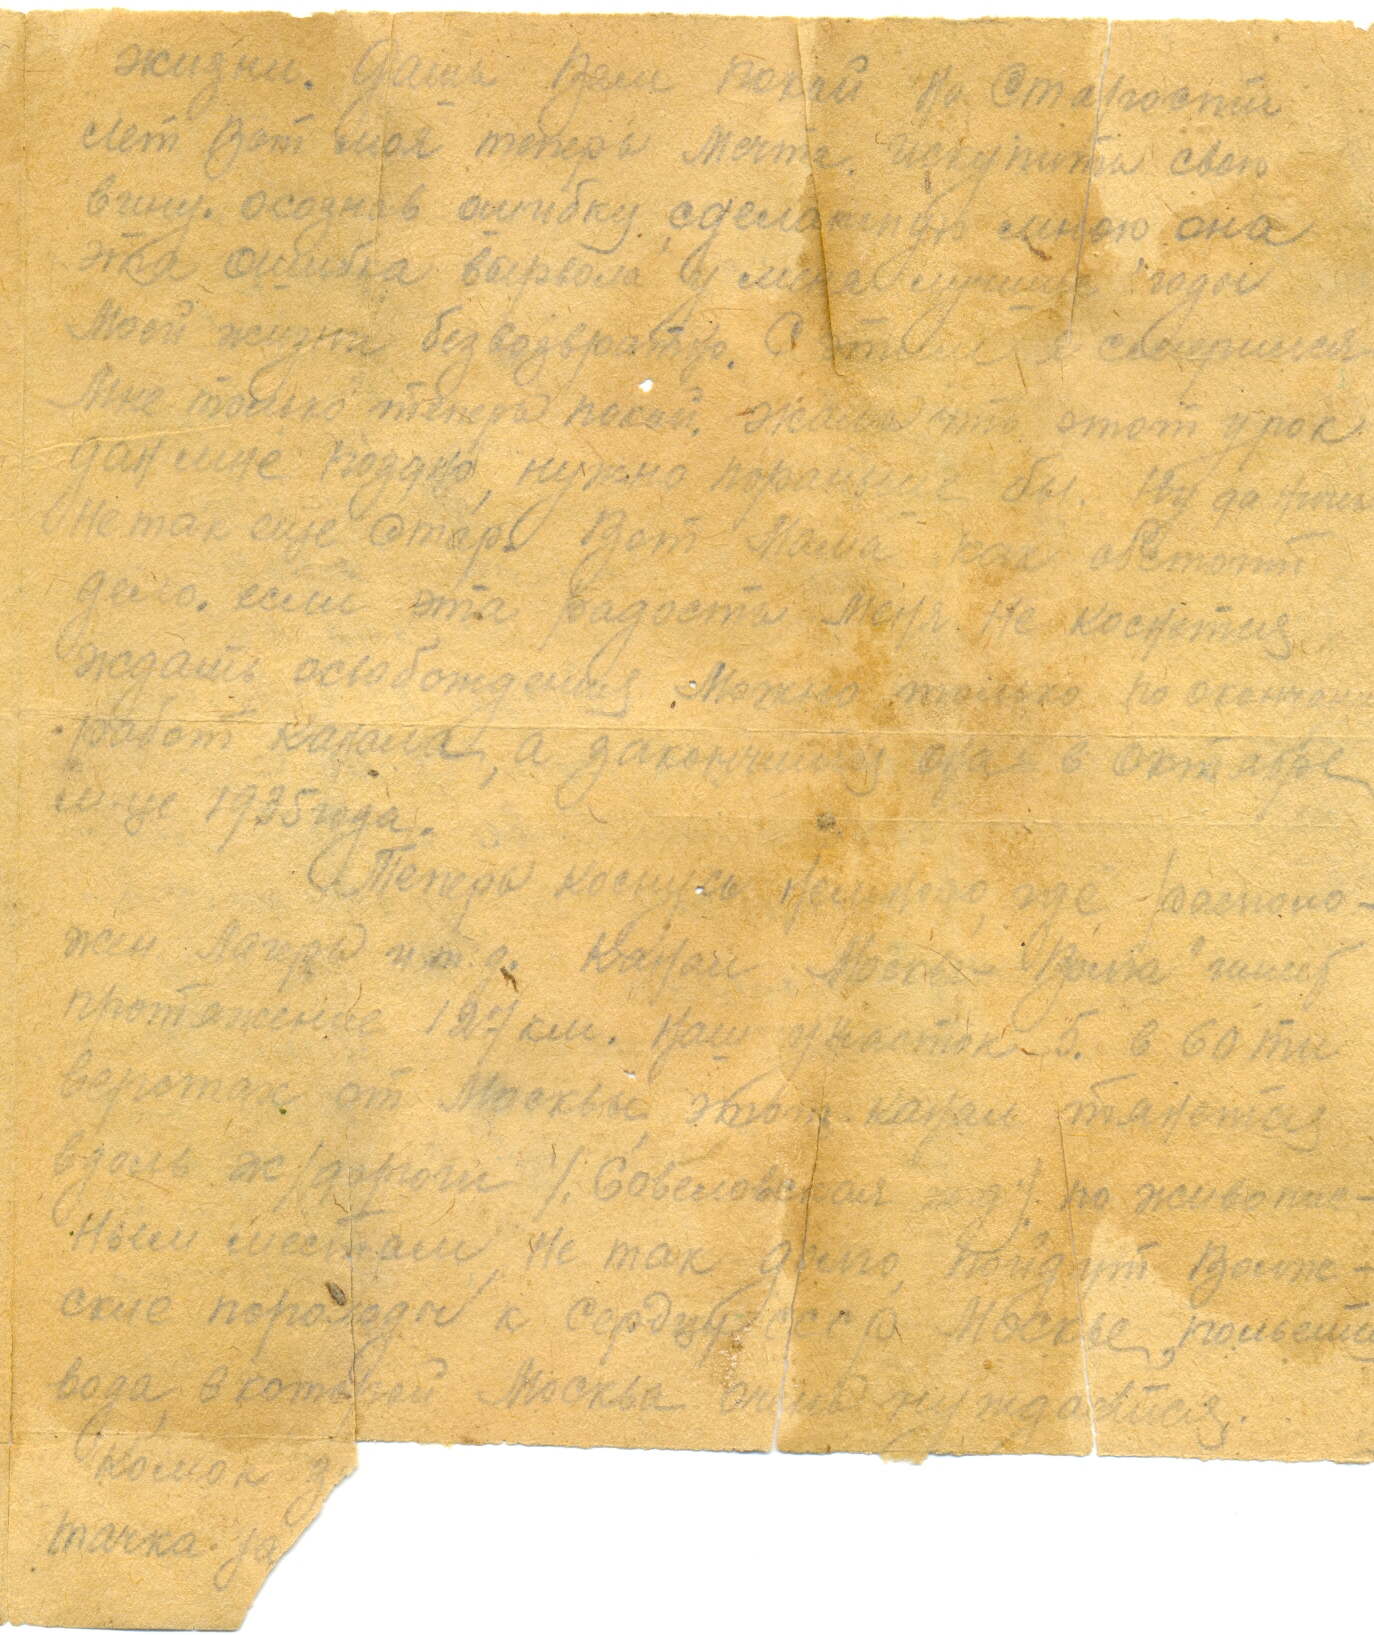 жизни. Дать Вам покой на Старости
лет Вот моя теперь Мечта. Искупить свою
вину. осознав ошибку, сделанную мною она
эта ошибка вырвала у меня лучшие годы
Моей жизни безвозвратно. С этим я смирился
Мне только теперь покой. Жаль что этот урок
дан мне поздно, нужно пораньше бы. Ну да
Не так еще Стар. Вот Мама как обстоит
дело. если эта радость Меня не коснется
ждать освобождения Можно только по окончани
работ канала, а закончится она в октябре
м-це 1935 года.
Теперь коснусь немного, где располо-
жен Лагерь и т.д. Канал Москва-Волга имеет
протяжение 127 км. Наш участок 5. в 60 ти
верстах от Москвы, этот канал тянется
вдоль ж/дороги /. Совеловская ж д / по живопис-
ным местам, не так долго, пойдут Волж-
ские пароходы к Сердцу СССР Москве, польется
вода, в которой Москва очень нуждается.
Комок з
тачка за